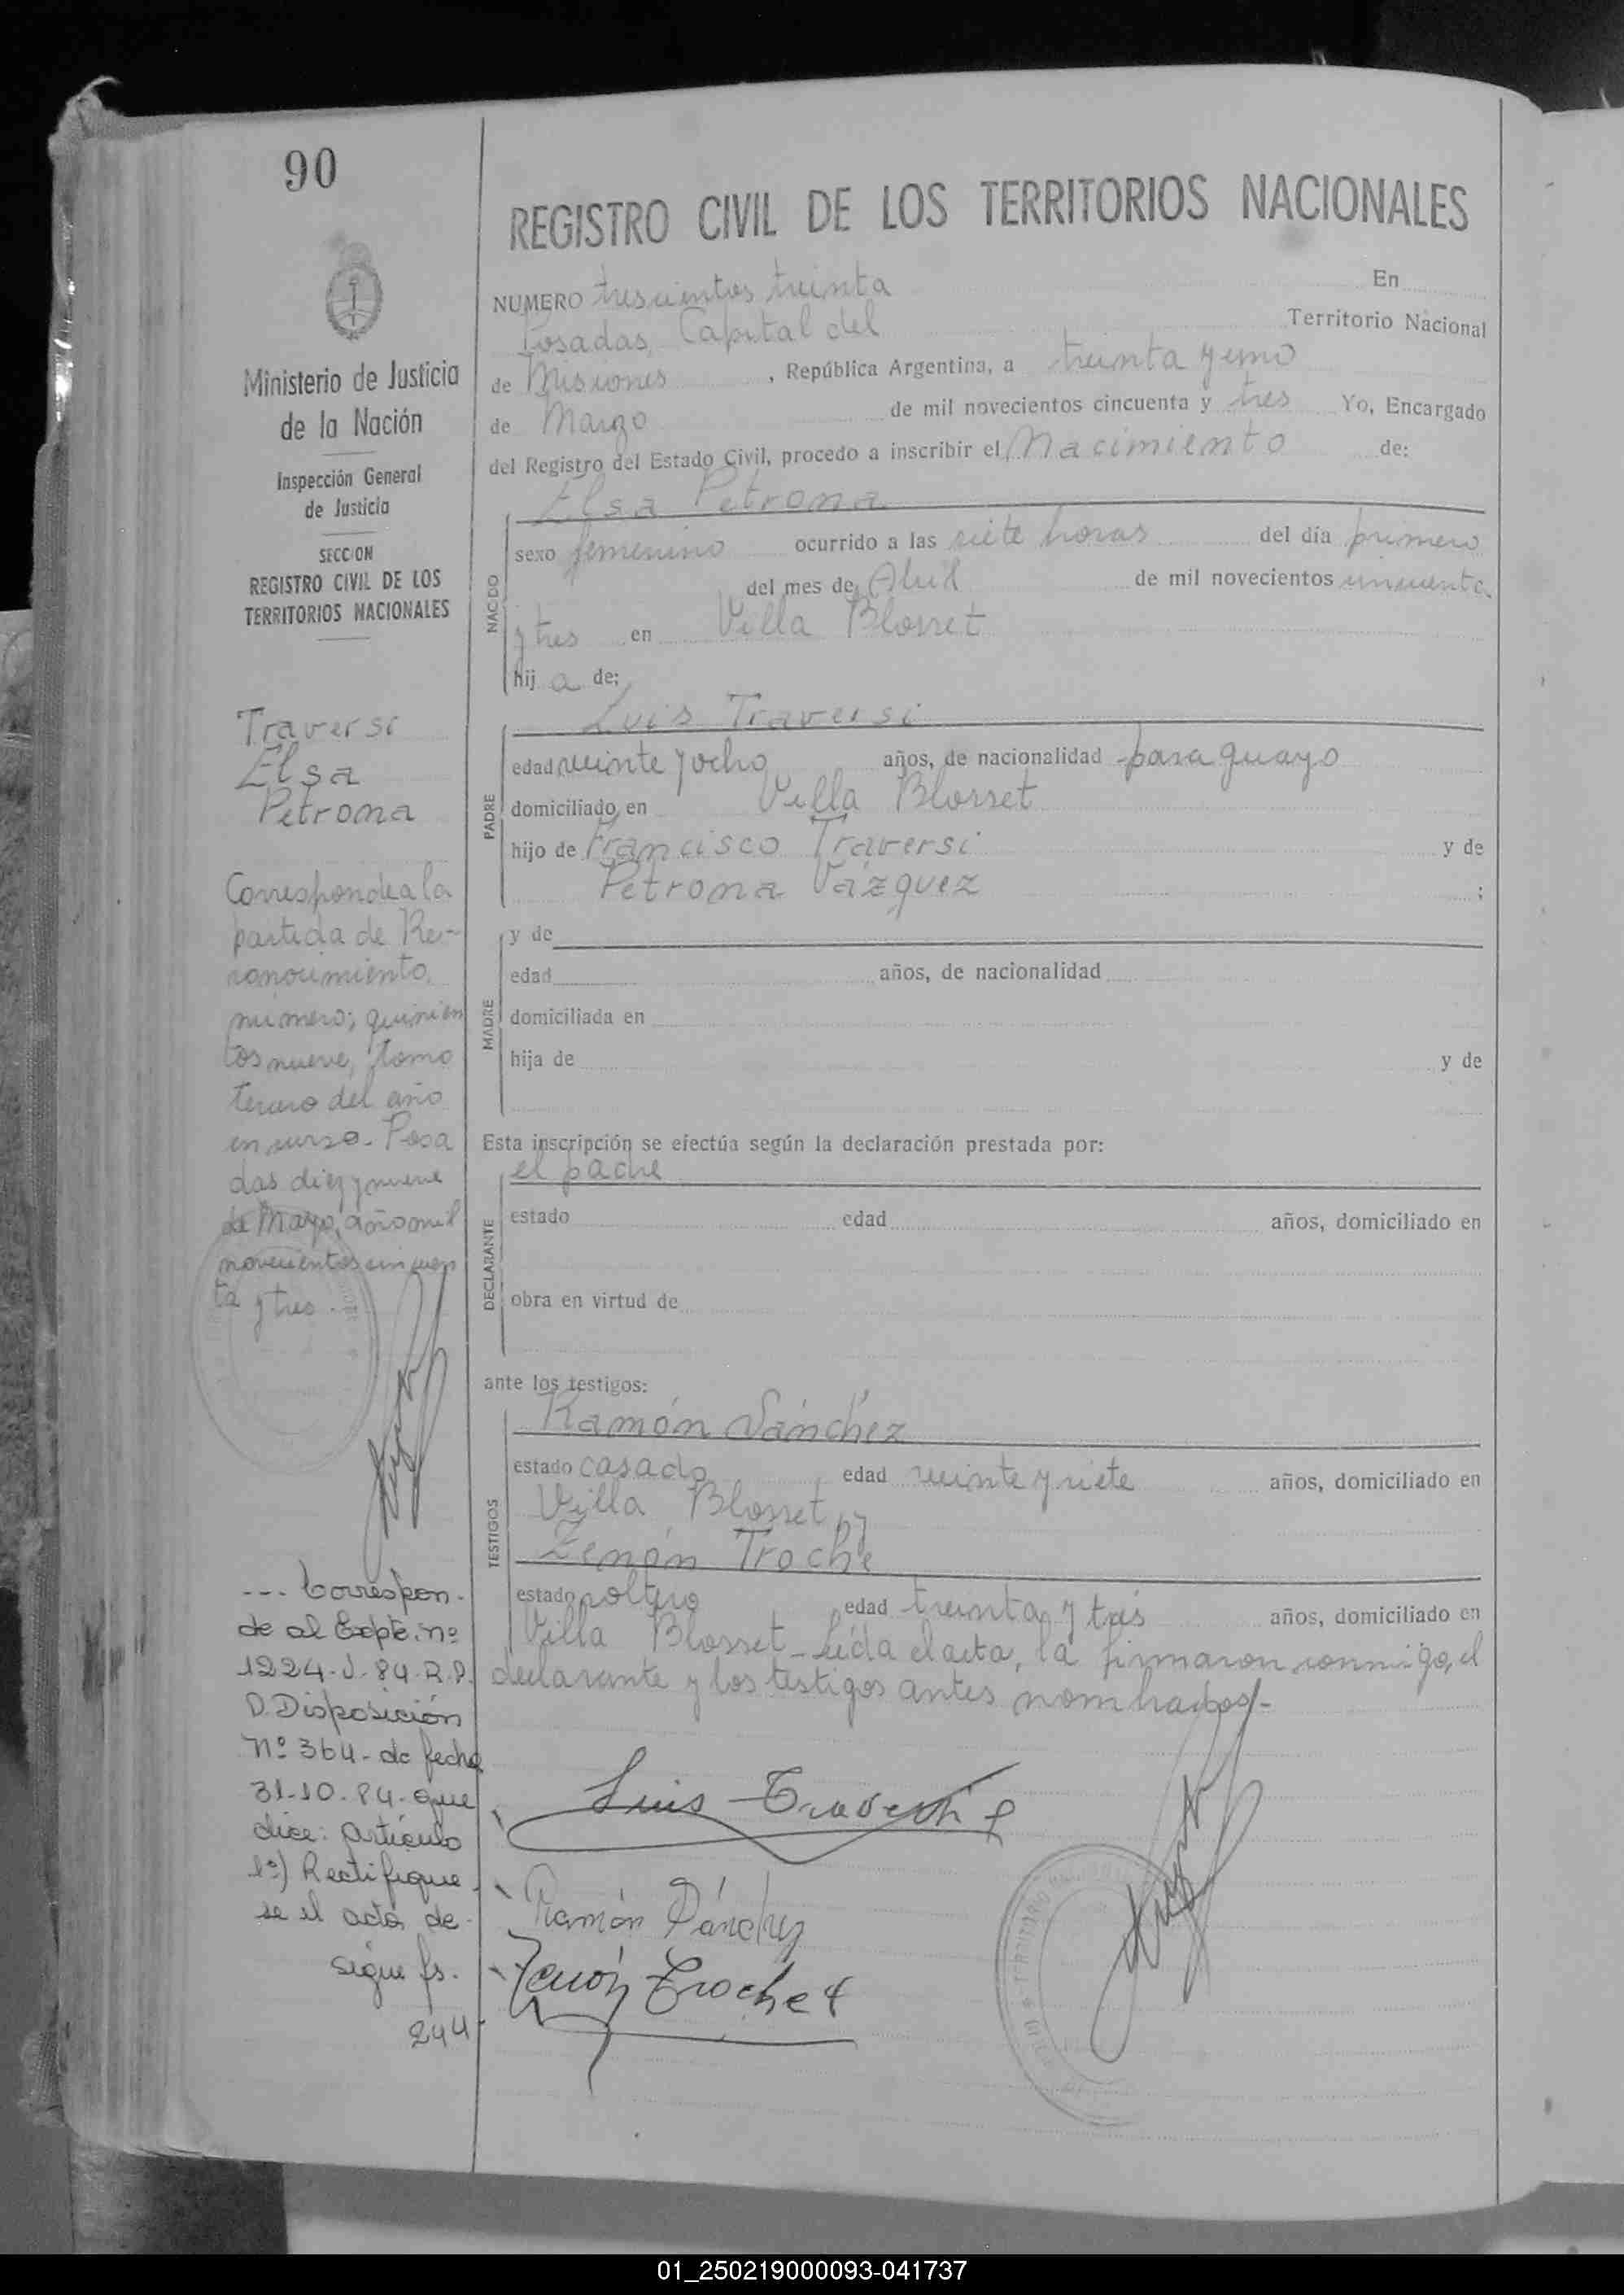 90
REGISTRO CIVIL DE LOS TERRITORIOS NACIONALES
Ministerio de Justicia
de la Nación
Inspección General
de Justicia
SECCION
REGISTRO CIVIL DE LOS
TERRITORIOS NACIONALES
Traversi
Elsa
Petrona
Corresponde a la
partida de Re-
conocimiento,
número; quinien
tos nueve, tomo
tercero del año
en curso - Posa
das diez y nueve
de Mayo, año mil
novecientos cincuen
ta y tres.
--- Correspon-
de al Expte. nº
1224-J-84-R.P.
D. Disposición
Nº 364- de fecha
31-10-84- que
dice: Artículo
1º) Rectifíque
se el acta de-
sigue fs.
244
NUMERO trescientos treinta En
Posadas, Capital del Territorio Nacional
de Misiones, República Argentina, a treinta y uno
de Marzo de mil novecientos cincuenta y tres Yo, Encargado
del Registro del Estado Civil, procedo a inscribir el Nacimiento de:
Elsa Petrona
NACIDO
sexo femenino ocurrido a las siete horas del día primero
del mes de Abril de mil novecientos cincuenta
y tres en Villa Blosset
hij a de:
Luis Traversi
PADRE
edad veinte y ocho años, de nacionalidad paraguayo
domiciliado en Villa Blosset
hijo de Francisco Traversi y de
Petrona Vázquez ;
MADRE
y de
edad años, de nacionalidad
domiciliada en
hija de y de
Esta inscripción se efectúa según la declaración prestada por:
el padre
DECLARANTE
estado edad años, domiciliado en
obra en virtud de
ante los testigos:
Ramón Sánchez
TESTIGOS
estado casado edad veinte y siete años, domiciliado en
Villa Blosset y
Zenón Troche
estado soltero edad treinta y tres años, domiciliado en
Villa Blosset - Leída el acta, la firmaron conmigo, el
declarante y los testigos antes nombrados -
Luis Traversi
Ramón Sánchez
Zenón Troche
01_250219000093-041737